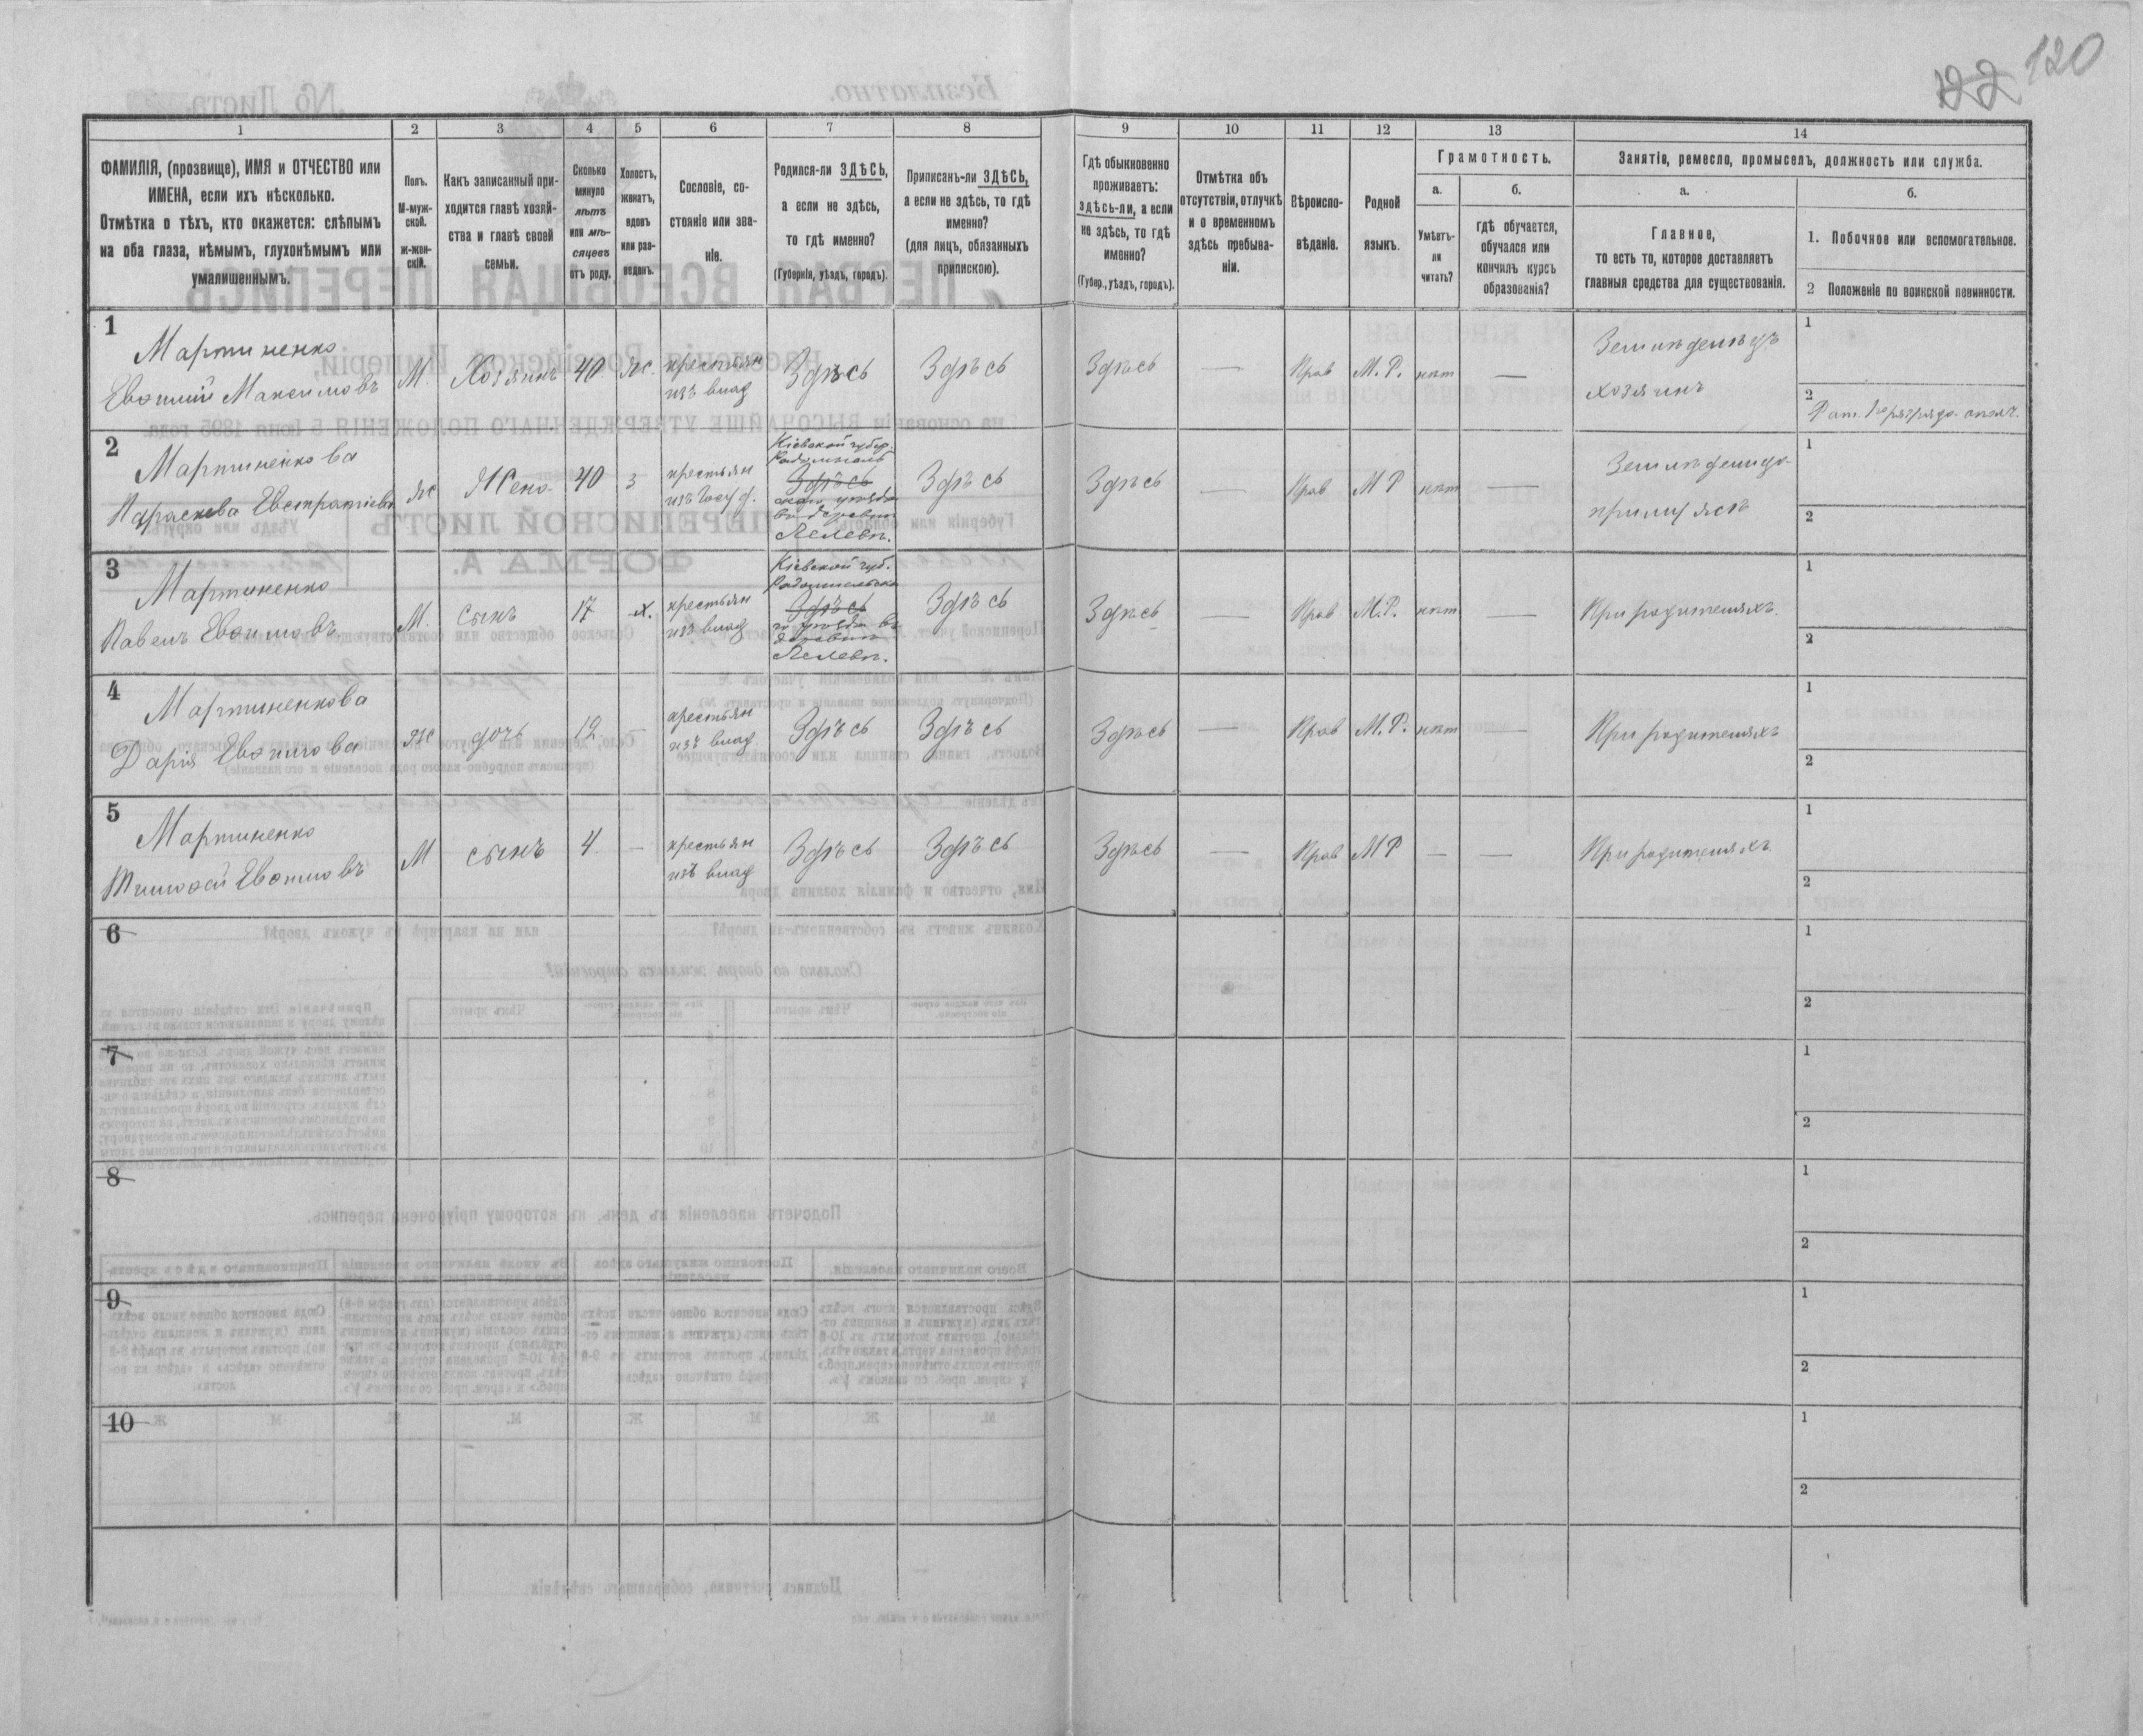 22 120
1 2 3 4 5 6 7 8 9 10 11 12 13 14
ФАМИЛІЯ, (прозвище), ИМЯ и ОТЧЕСТВО или
ИМЕНА, если ихъ нѣсколько.
Отмѣтка о тѣхъ, кто окажется: слѣпымъ
на оба глаза, нѣмымъ, глухонѣмымъ или
умалишеннымъ.
Полъ.
М-муж-
ской.
ж-жен-
скій.
Какъ записанный при-
ходится главѣ хозяй-
ства и главѣ своей
семьи.
Сколько
минуло
лѣтъ
или мѣ-
сяцевъ
отъ роду.
Холостъ,
женатъ,
вдовъ
или раз-
веденъ.
Сословіе, со-
стояніе или зва-
ніе.
Родился-ли ЗДѢСЬ,
а если не здѣсь,
то гдѣ именно?
(Губернія, уѣздъ, городъ).
Приписанъ-ли ЗДѢСЬ,
а если не здѣсь, то гдѣ
именно?
(для лицъ, обязанныхъ
припискою).
Гдѣ обыкновенно
проживаетъ:
здѣсь-ли, а если
не здѣсь, то гдѣ
именно?
(Губер., уѣздъ, городъ).
Отмѣтка объ
отсутствіи, отлучкѣ
и о временномъ
здѣсь пребыва-
ніи.
Вѣроиспо-
вѣданіе.
Родной
языкъ.
Грамотность.
а.
Умѣетъ-
ли
читать?
б.
гдѣ обучается,
обучался или
кончилъ курсъ
образованія?
Занятіе, ремесло, промыселъ, должность или служба.
а.
Главное,
то есть то, которое доставляетъ
главныя средства для существованія.
б.
1. Побочное или вспомогательное.
2 Положеніе по воинской повинности.
1
Мартиненко
Евфимій Максимовъ
М.
Хозяинъ
40
Ж.
крестьян
изъ влад
Здѣсь
Здѣсь
Здѣсь
—
Прав
М.Р.
нѣт
—
Земледѣлецъ
хозяинъ
1
2
2
Мартиненкова
Параскева Евстратіева
Ж
Жена
40
З
крестьян
изъ Госуд.
Кіевской губер.
Радомысль
Здѣсь
скаго уѣзда
въ деревнѣ
Лелевѣ.
Здѣсь
Здѣсь
—
Прав
М Р
нѣт
—
1
2
3
Мартиненко
Павелъ Евфимовъ
М.
Сынъ
17
Х.
крестьян
изъ влад
Кіевской губ.
Радомысльска
Здѣсь
го уѣзда въ
деревнѣ
Лелевѣ.
Здѣсь
Здѣсь
—
Прав
М.Р.
нѣт
—
При родителяхъ.
1
2
4
Мартиненкова
Дарія Евфимова
Ж
дочь
12
—
крестьян
изъ влад
Здѣсь
Здѣсь
Здѣсь
—
Прав
М.Р.
нѣт
—
При родителяхъ
1
2
5
Мартиненко
Тимофей Евфимовъ
М
сынъ
4
—
крестьян
изъ влад
Здѣсь
Здѣсь
Здѣсь
—
Прав
М Р
—
—
При родителяхъ.
1
2
6
1
2
7
1
2
8
1
2
9
1
2
10
1
2